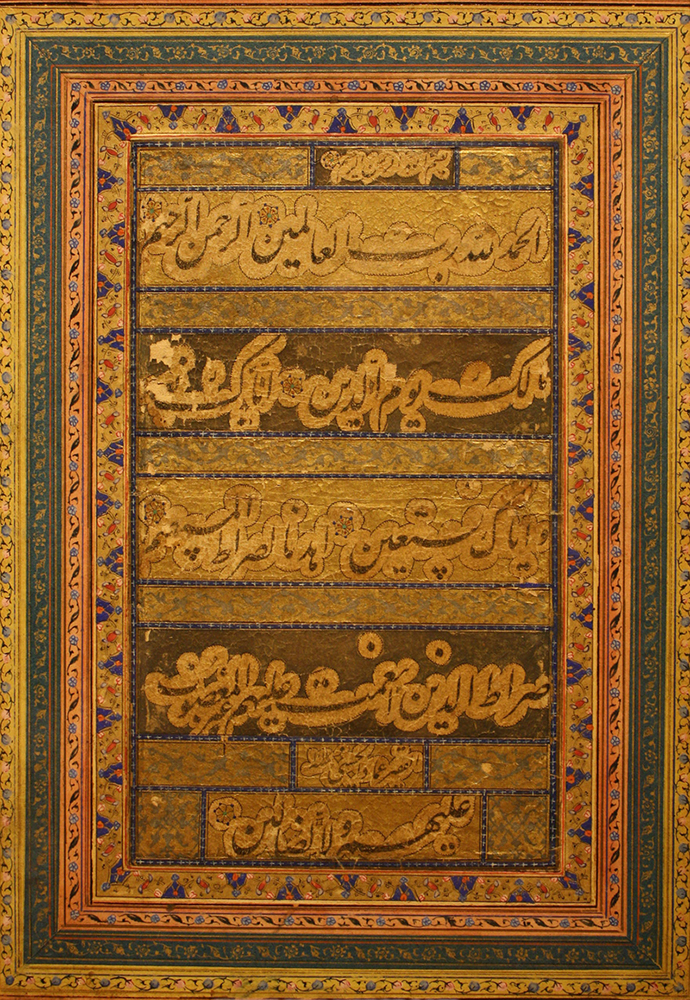 بسم الله الرحمن الرحيم
الحمد لله رب العالمين الرحمن الرحيم
مالك يوم الدين اياك نعبد
واياك نستعين اهدنا الصراط المستقيم
صراط الذين انعمت عليهم غير المغضوب
عماد الحسنى
عليهم ولا الضالين